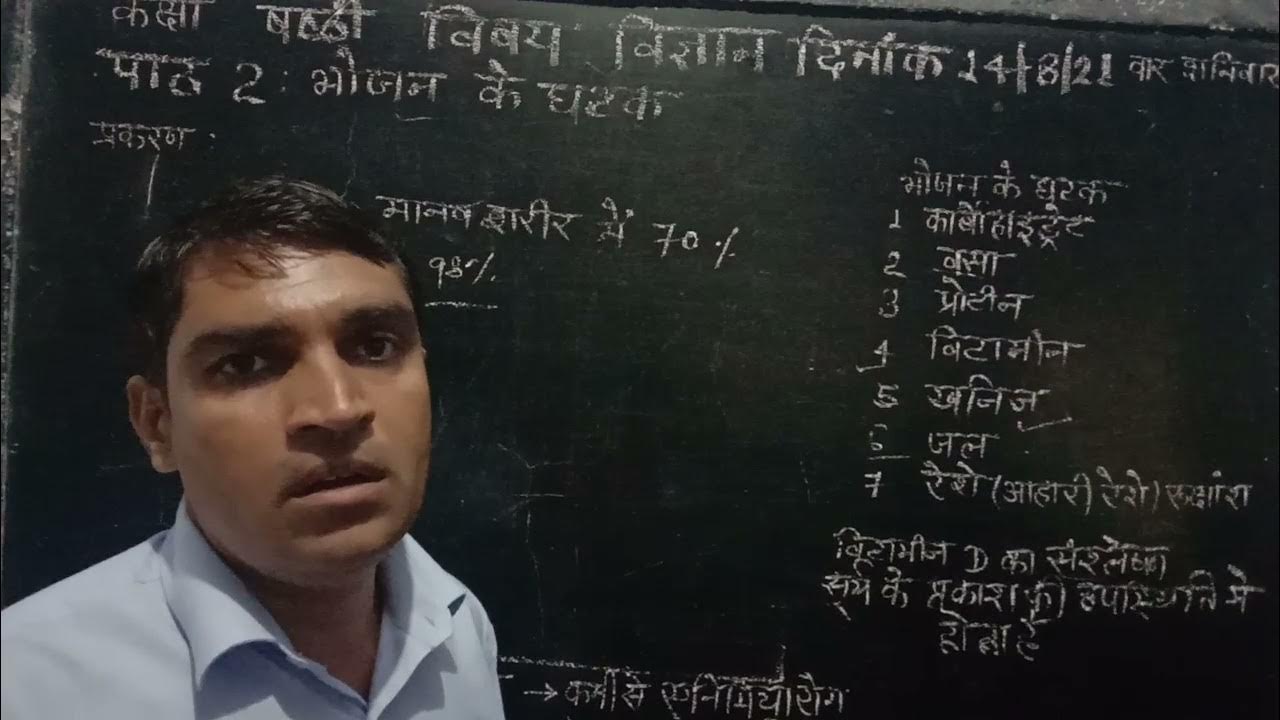 कक्षा षष्ठी विषय विज्ञान दिनांक 14/8/21 वार शनिवार
पाठ 2 : भोजन के घटक
प्रकरण :
मानव शरीर में 70%
भोजन के घटक
1 कार्बोहाइड्रेट
2 वसा
3 प्रोटीन
4 विटामीन
5 खनिज
6 जल
7 रेशे (आहारी रेशे) रूक्षांश
विटामीन D का संश्लेषण
सूर्य के प्रकाश की उपस्थिति मे
होता है
→ कमी से एनिमिया रोग